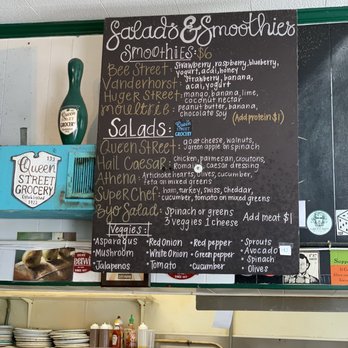 Salads & Smoothies
Smoothies: $6
Bee Street: Strawberry, raspberry, blueberry,
yogurt, acai, honey
Vanderhorst: Strawberry, banana,
acai, yogurt
Huger Street: mango, banana, lime,
coconut nectar
Moultrie: peanut butter, banana,
chocolate soy (Add protein $1)
Salads:
Queen Street: goat cheese, walnuts,
green apple on spinach
Hail Caesar: chicken, parmesan, croutons,
Romaine, caesar dressing
Athena: Artichoke hearts, olives, cucumber,
feta on mixed greens
Super Chef: ham, turkey, swiss, cheddar,
cucumber, tomato on mixed greens
Byo Salad: Spinach or greens
3 veggies 1 cheese Add meat $1
Veggies:
• Asparagus • Red Onion • Red pepper • Sprouts
• Mushroom • White Onion • Green pepper • Avocado
• Jalapenos • Tomato • Cucumber • Spinach
• Olives
Queen
Street
Grocery
133
Queen
Street
Grocery
Established
1922